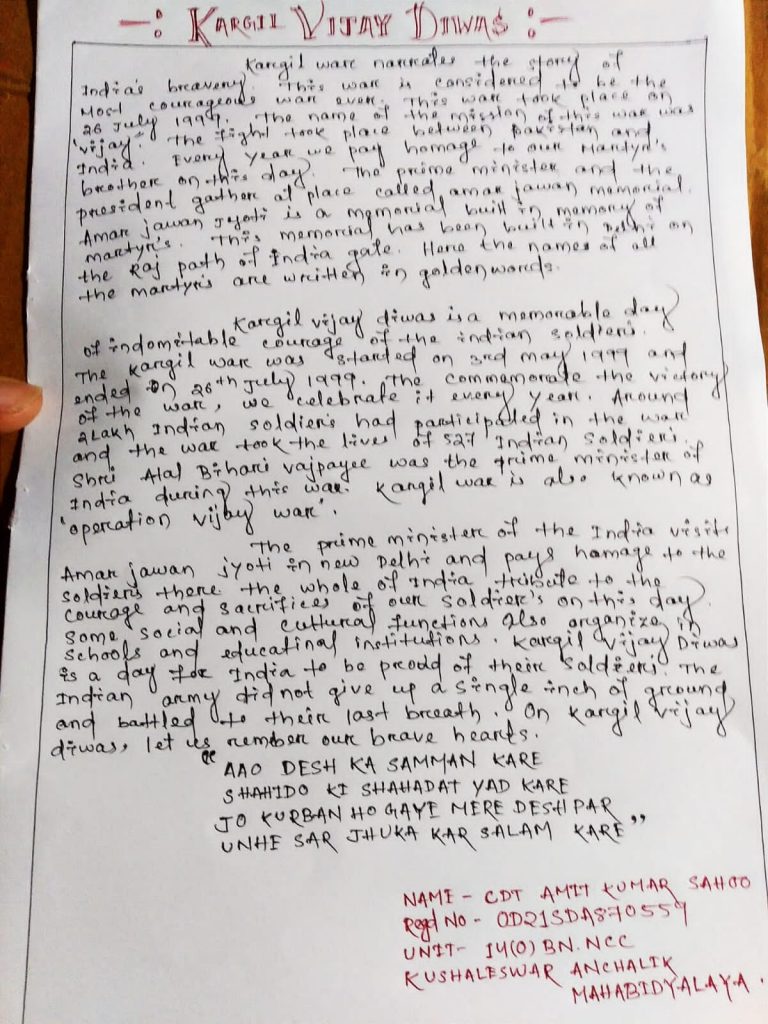 -: KARGIL VIJAY DIWAS :-
Kargil war narrates the story of
India's bravery. This war is considered to be the
Most courageous war ever. This war took place on
26 July 1999. The name of the mission of this war was
'vijay'. The fight took place between pakistan and
India. Every year we pay homage to our Martyr's
brother on this day. The prime minister and the
president gather at place called amar jawan memorial.
Amar jawan Jyoti is a memorial built in memory of
martyr's. This memorial has been built in Delhi on
the Raj path of India gate. Here the names of all
the martyr's are written in goldenwords.
Kargil vijay diwas is a memorable day
of indomitable courage of the indian soldiers.
The Kargil war was started on 3rd may 1999 and
ended on 26th July 1999. The commemorate the victory
of the war, we celebrate it every year. Around
2 Lakh Indian soldier's had participated in the war
and the war took the lives of 527 Indian soldiers.
Shri Atal Bihari vajpayee was the prime minister of
India during this war. Kargil war is also known as
'operation vijay war'.
The prime minister of the India visits
Amar jawan jyoti in new Delhi and pays homage to the
soldiers there the whole of India tribute to the
courage and sacrifices of our soldier's on this day.
Some social and cultural functions also organize in
schools and educatinal institutions. Kargil Vijay Diwas
is a day for India to be proud of their soldiers. The
Indian army did not give up a single inch of ground
and battled to their last breath. On Kargil vijay
diwas, let us rember our brave hearts.
"AAO DESH KA SAMMAN KARE
SHAHIDO KI SHAHADAT YAD KARE
JO KURBAN HO GAYE MERE DESH PAR
UNHE SAR JHUKA KAR SALAM KARE"
NAME - CDT AMIT KUMAR SAHOO
Regd No - OD21SDA870559
UNIT- 14(O) BN. NCC
KUSHALESWAR ANCHALIK
MAHABIDYALAYA.